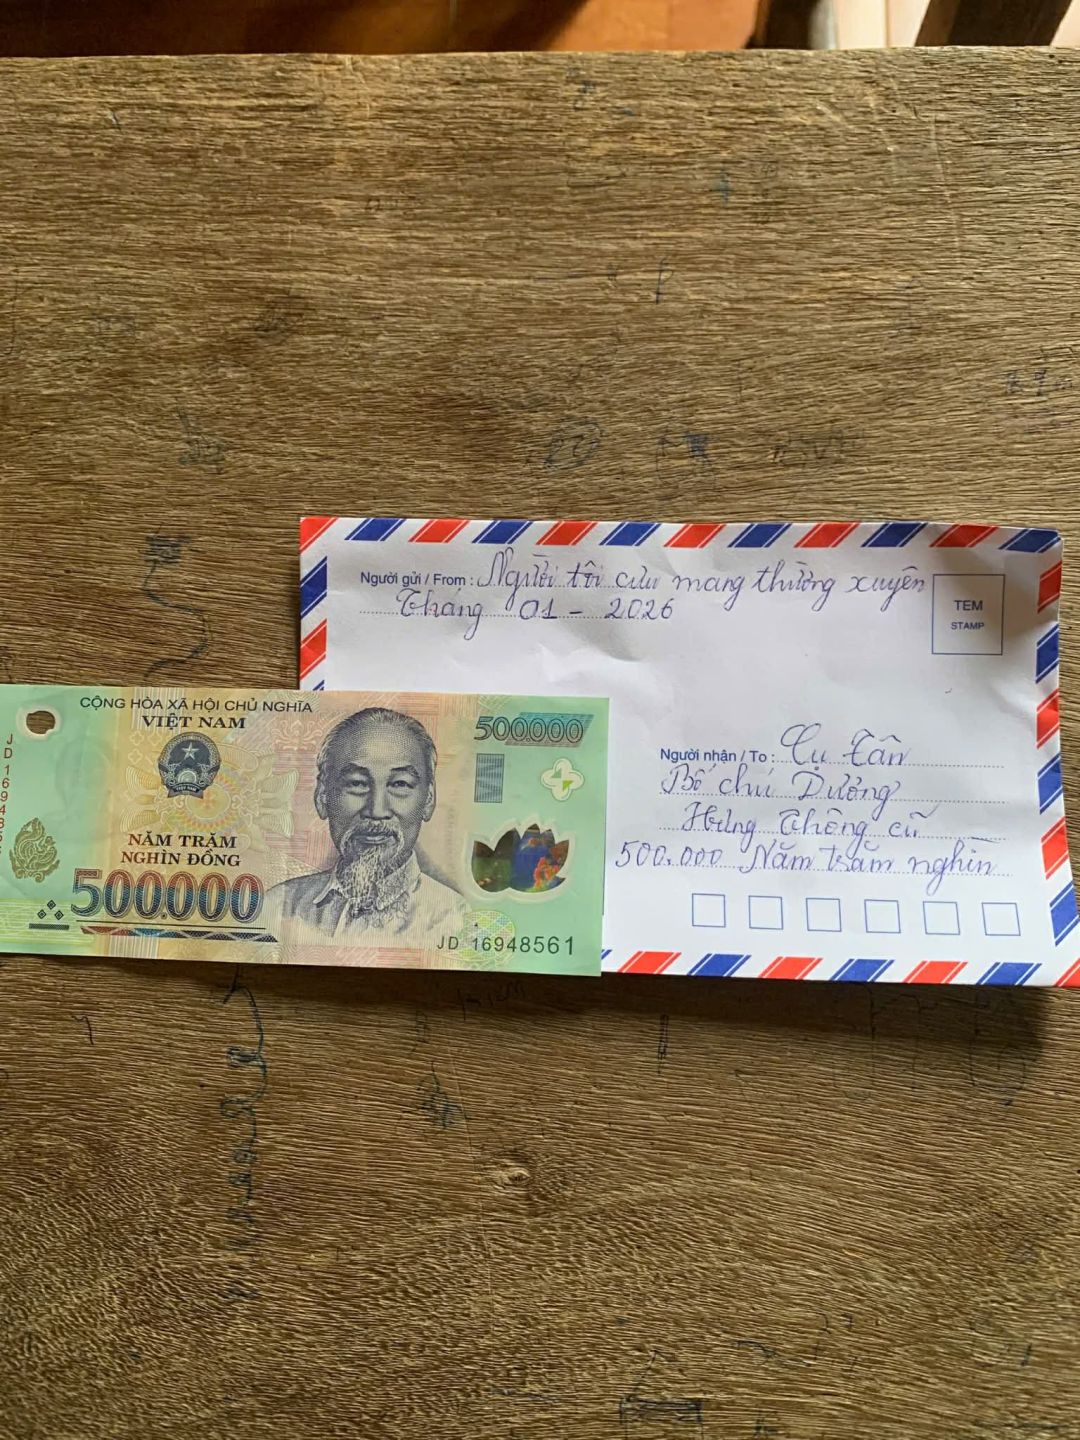 Người gửi / From : Người tôi cưu mang thường xuyên
Tháng 01 - 2026
TEM
STAMP
Người nhận / To : Cụ Tân
Bố chú Dưỡng
Hưng Thông cũ
500.000 Năm trăm nghìn
CỘNG HÒA XÃ HỘI CHỦ NGHĨA
VIỆT NAM
500000
NĂM TRĂM
NGHÌN ĐỒNG
500.000
JD 16948561